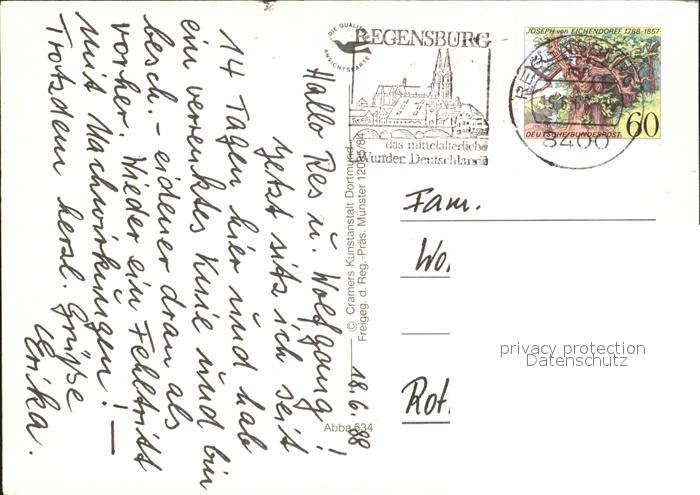 DIE QUALITÄTS
ANSICHTSKARTE
REGENSBURG
das mittelalterliche
Wunder Deutschlands
JOSEPH von EICHENDORFF 1788-1857
DEUTSCHE BUNDESPOST
60
8400
18.6.88
Hallo Res u. Wolfgang!
Jetzt sitz ich seit
14 Tagen hier und hab
ein verrenktes Knie und bin
besch. - eidener dran als
vorher. Wieder ein Fehltritt
mit Nachwirkungen! —
Trotzdem herzl. Grüße
Erika.
© Cramers Kunstanstalt Dortmund
Freigeg. d. Reg.-Präs. Münster 12085/84
Abba 534
Fam.
Wo
Rot
privacy protection
Datenschutz